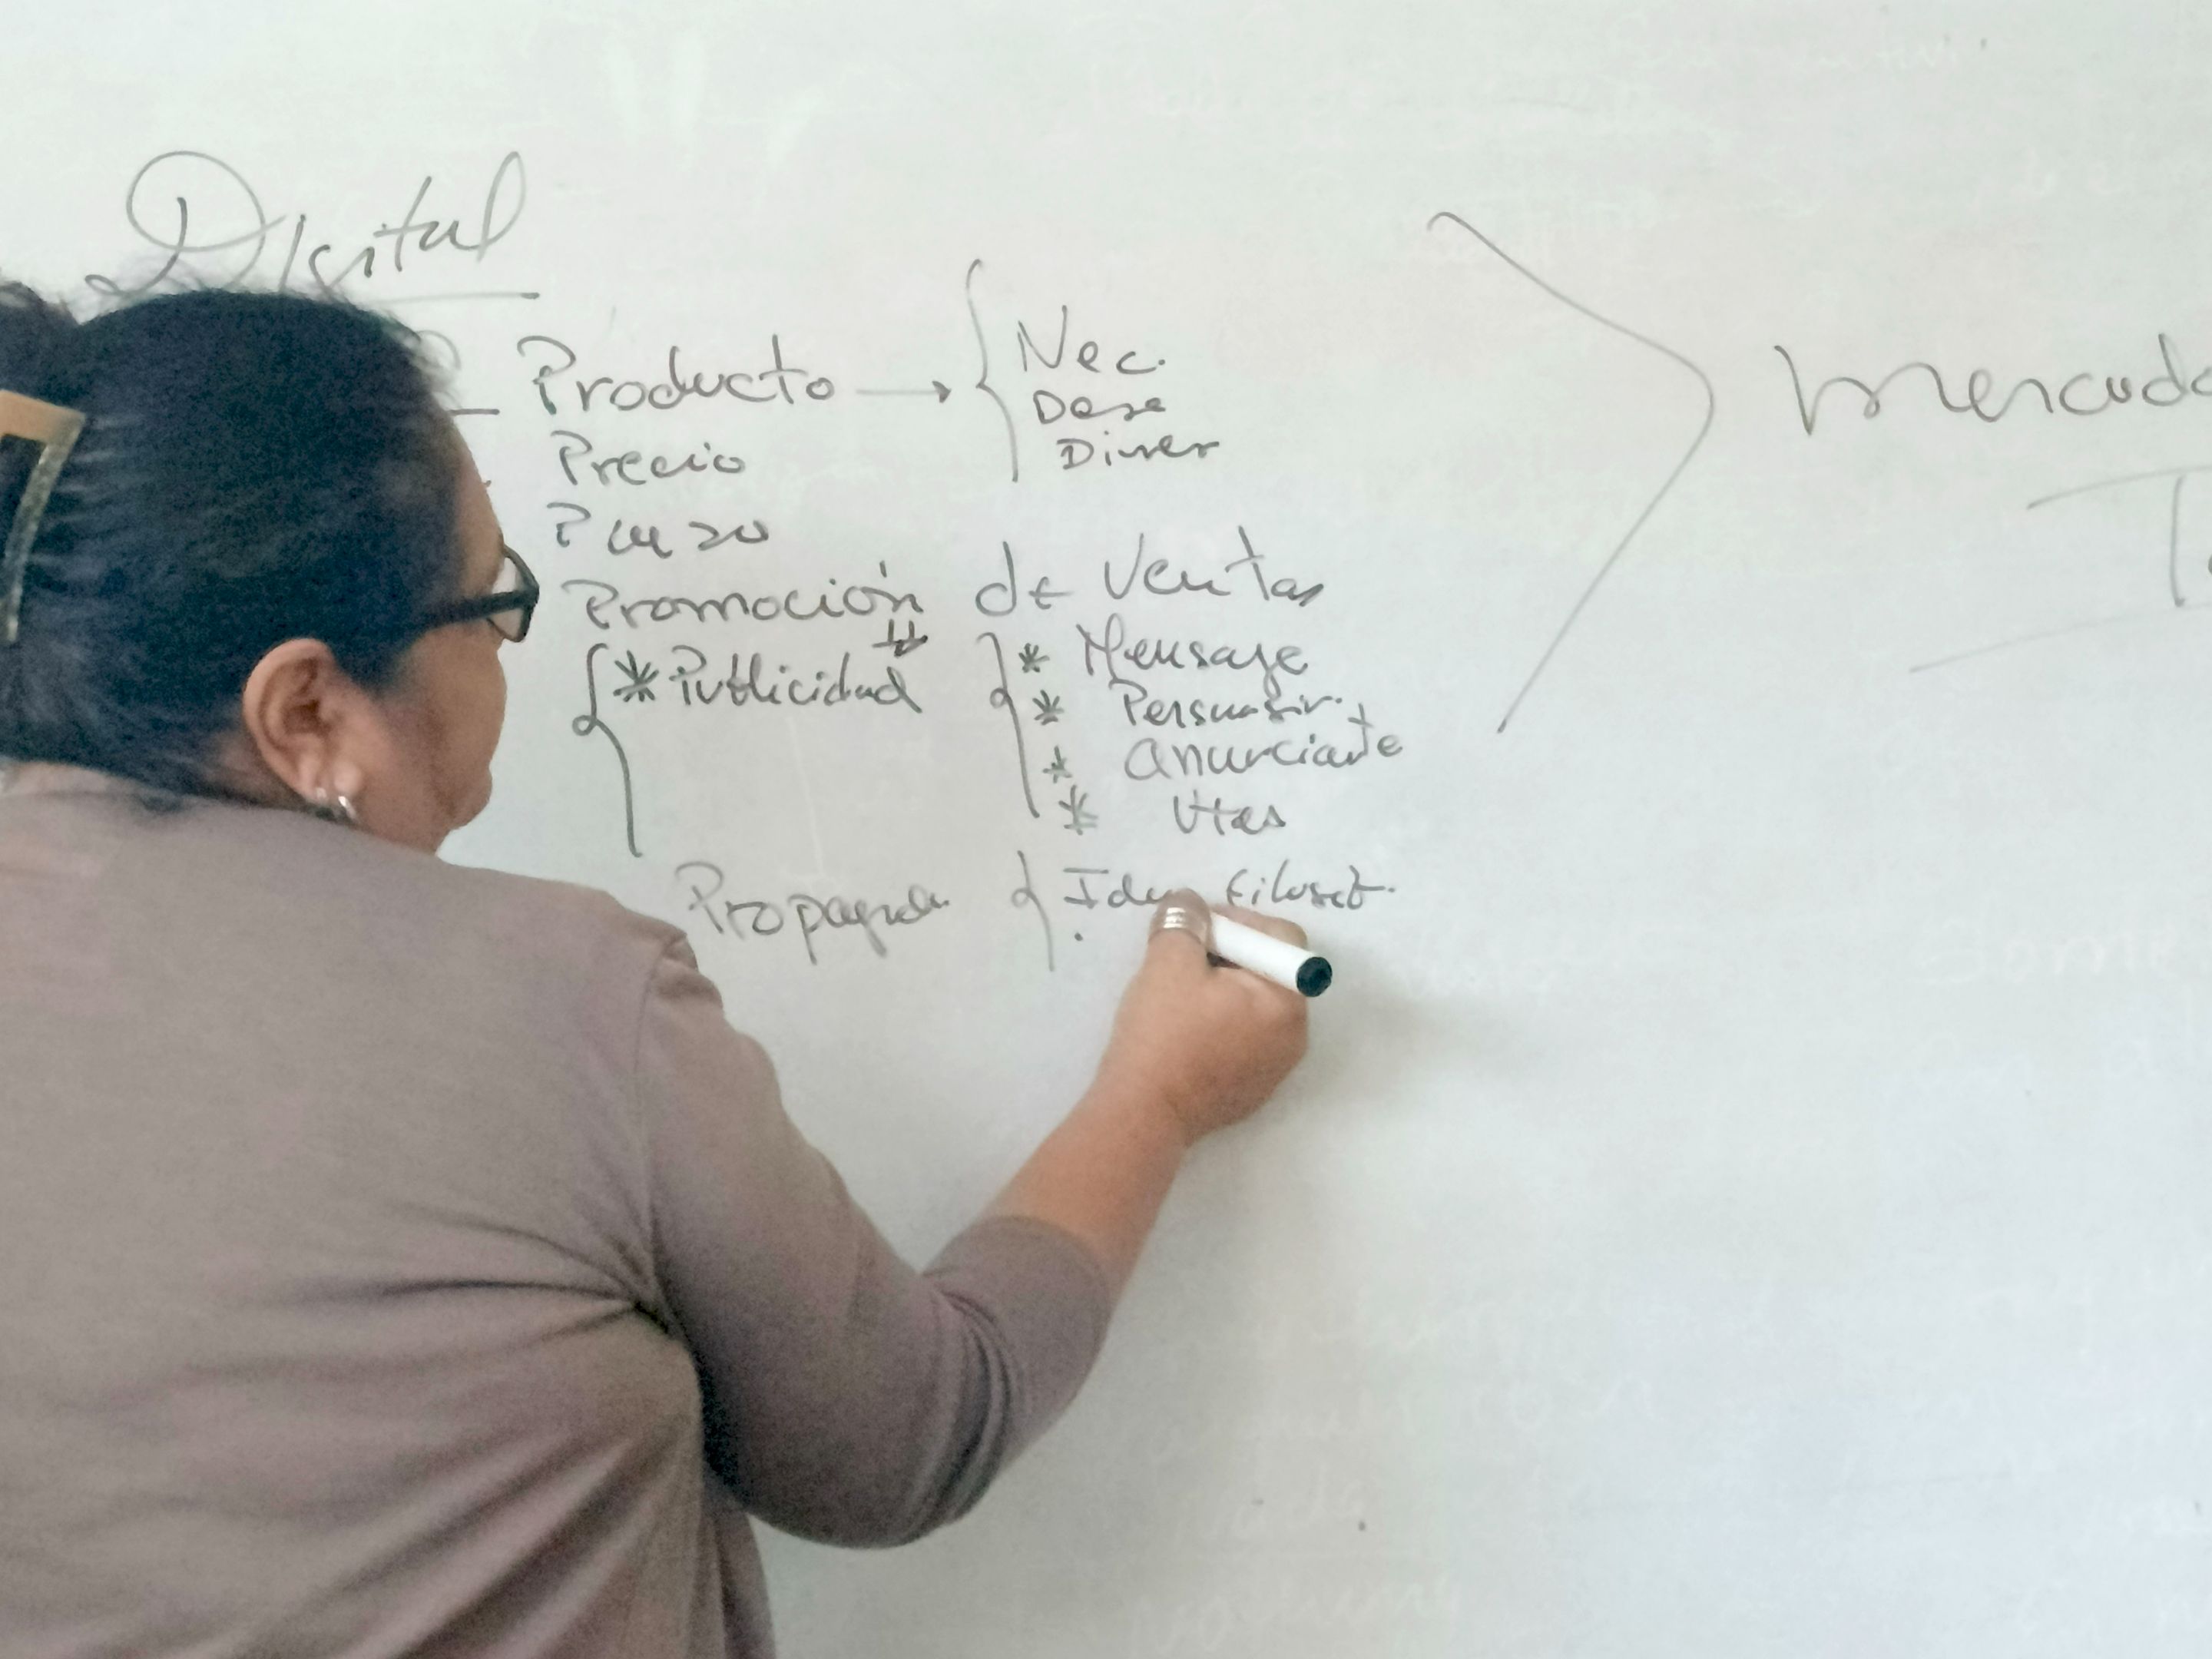 Digital
Producto → { Nec.
Dese
Diner
Precio
Promoción de Ventas
* Publicidad
* Mensaje
* Persuasiv.
* anunciante
* Vtas
Propagnda { Filosof.
mercado